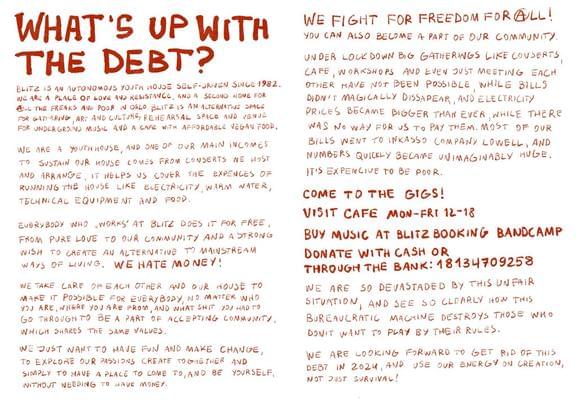 WHAT'S UP WITH
THE DEBT?
BLITZ IS AN AUTONOMOUS YOUTH HOUSE SELF-DRIVEN SINCE 1982.
WE ARE A PLACE OF LOVE AND RESISTANCE, AND A SECOND HOME FOR
ALL THE FREAKS AND POOR IN OSLO. BLITZ IS AN ALTERNATIVE SPACE
FOR GATHERING, ART AND CULTURE, REHEARSAL SPACE AND VENUE
FOR UNDERGROUND MUSIC AND A CAFE WITH AFFORDABLE VEGAN FOOD.
WE ARE A YOUTHHOUSE, AND ONE OF OUR MAIN INCOMES
TO SUSTAIN OUR HOUSE COMES FROM CONSERTS WE HOST
AND ARRANGE, IT HELPS US COVER THE EXPENCES OF
RUNNING THE HOUSE LIKE ELECTRICITY, WARM WATER,
TECHNICAL EQUIPMENT AND FOOD.
EVERYBODY WHO "WORKS" AT BLITZ DOES IT FOR FREE,
FROM PURE LOVE TO OUR COMMUNITY AND A STRONG
WISH TO CREATE AN ALTERNATIVE TO MAINSTREAM
WAYS OF LIVING. WE HATE MONEY!
WE TAKE CARE OF EACH OTHER AND OUR HOUSE TO
MAKE IT POSSIBLE FOR EVERYBODY, NO MATTER WHO
YOU ARE, WHERE YOU ARE FROM, AND WHAT SHIT YOU HAD TO
GO THROUGH TO BE A PART OF ACCEPTING COMMUNITY,
WHICH SHARES THE SAME VALUES.
WE JUST WANT TO HAVE FUN AND MAKE CHANGE,
TO EXPLORE OUR PASSIONS CREATE TOGHETHER AND
SIMPLY TO HAVE A PLACE TO COME TO, AND BE YOURSELF,
WITHOUT NEEDING TO HAVE MONEY.
WE FIGHT FOR FREEDOM FOR ALL!
YOU CAN ALSO BECOME A PART OF OUR COMMUNITY.
UNDER LOCKDOWN BIG GATHERINGS LIKE CONSERTS,
CAFE, WORKSHOPS AND EVEN JUST MEETING EACH
OTHER HAVE NOT BEEN POSSIBLE, WHILE BILLS
DIDN'T MAGICALLY DISSAPEAR, AND ELECTRICITY
PRICES BECAME BIGGER THAN EVER, WHILE THERE
WAS NO WAY FOR US TO PAY THEM. MOST OF OUR
BILLS WENT TO INKASSO COMPANY LOWELL, AND
NUMBERS QUICKLY BECAME UNIMAGINABLY HUGE.
IT'S EXPENCIVE TO BE POOR.
COME TO THE GIGS!
VISIT CAFE MON-FRI 12-18
BUY MUSIC AT BLITZBOOKING BANDCAMP
DONATE WITH CASH OR
THROUGH THE BANK: 18134709258
WE ARE SO DEVASTADED BY THIS UNFAIR
SITUATION, AND SEE SO CLEARLY HOW THIS
BUREAUCRATIC MACHINE DESTROYS THOSE WHO
DON'T WANT TO PLAY BY THEIR RULES.
WE ARE LOOKING FORWARD TO GET RID OF THIS
DEBT IN 2024, AND USE OUR ENERGY ON CREATION,
NOT JUST SURVIVAL!